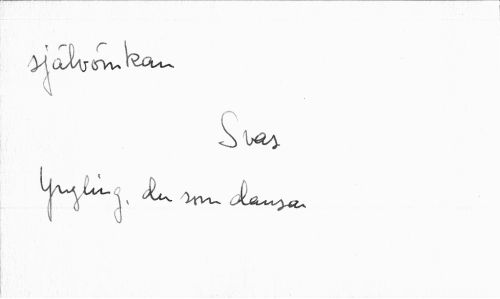 självömkan
Svas
Yngling, du som dansar